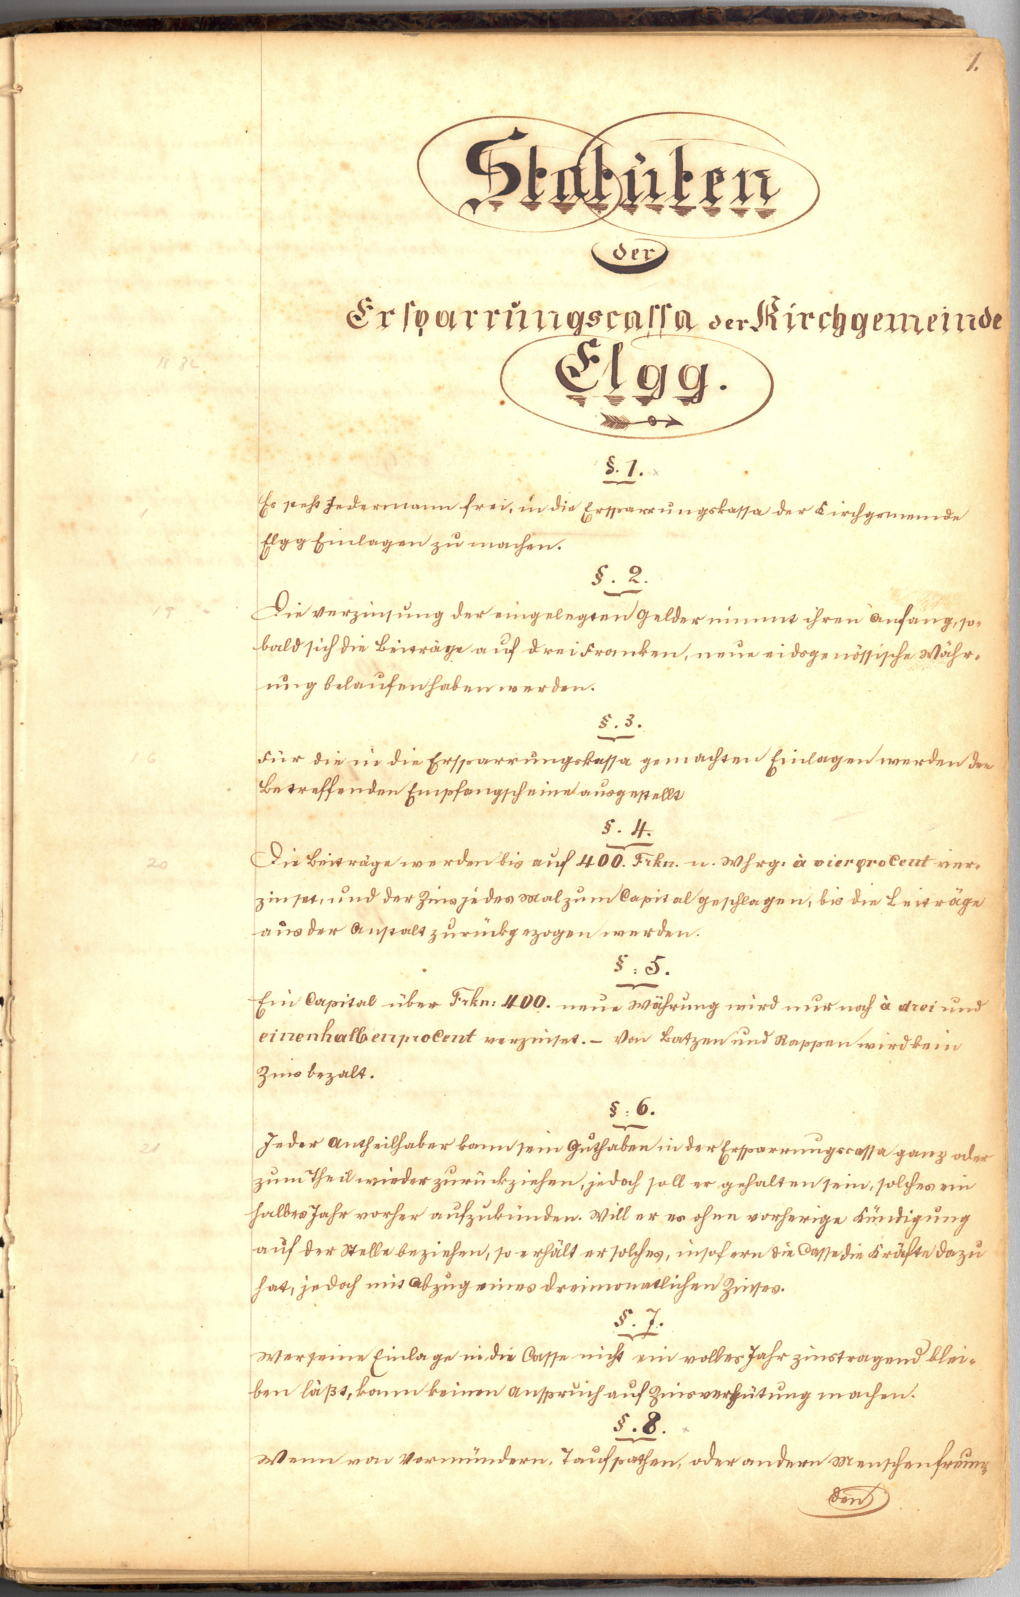 1.
Statuten
der
Ersparrungscassa der Kirchgemeinde
Elgg.
§. 1.
Es steht Jedermann frei, in die Ersparrungskassa der Kirchgemeinde
Elgg Einlagen zu machen.
§. 2.
Die Verzinsung der eingelegten Gelder nimmt ihren Anfang, so-
bald sich die Beiträge auf drei Franken, neue eidsgenössische Währ-
ung belaufen haben werden.
§. 3.
Für die in die Ersparrungskassa gemachten Einlagen werden den
Betreffenden Empfangscheine ausgestellt
§. 4.
Die Beiträge werden bis auf 400. Frkn. n. Whrg. à vierprocent ver-
zinset, und der Zins jedes Mal zum Capital geschlagen, bis die Beiträge
aus der Anstalt zurückgezogen werden.
§: 5.
Ein Capital über Frkn: 400. neue Währung wird nur noch à drei und
einenhalbenprocent verzinset. – Von Batzen und Rappen wird kein
Zins bezalt.
§: 6.
Jeder Antheilhaber kann sein Guthaben in der Ersparrungscassa ganz oder
zum Theil wieder zurückziehen, jedoch soll er gehalten sein, solches ein
halbes Jahr vorher aufzukünden. Will er es ohne vorherige Kündigung
auf der Stelle beziehen, so erhält er solches, insofern die Casse die Kräfte dazu
hat, jedoch mit Abzug eines dreimonatlichen Zinses.
§. 7.
Wer seine Einlage in die Casse nicht ein volles Jahr zinstragend blei-
ben läßt, kann keinen Anspruch auf Zinsvergütung machen.
§. 8.
Wenn von Vormündern, Taufpathen, oder andern Menschenfreun-
den